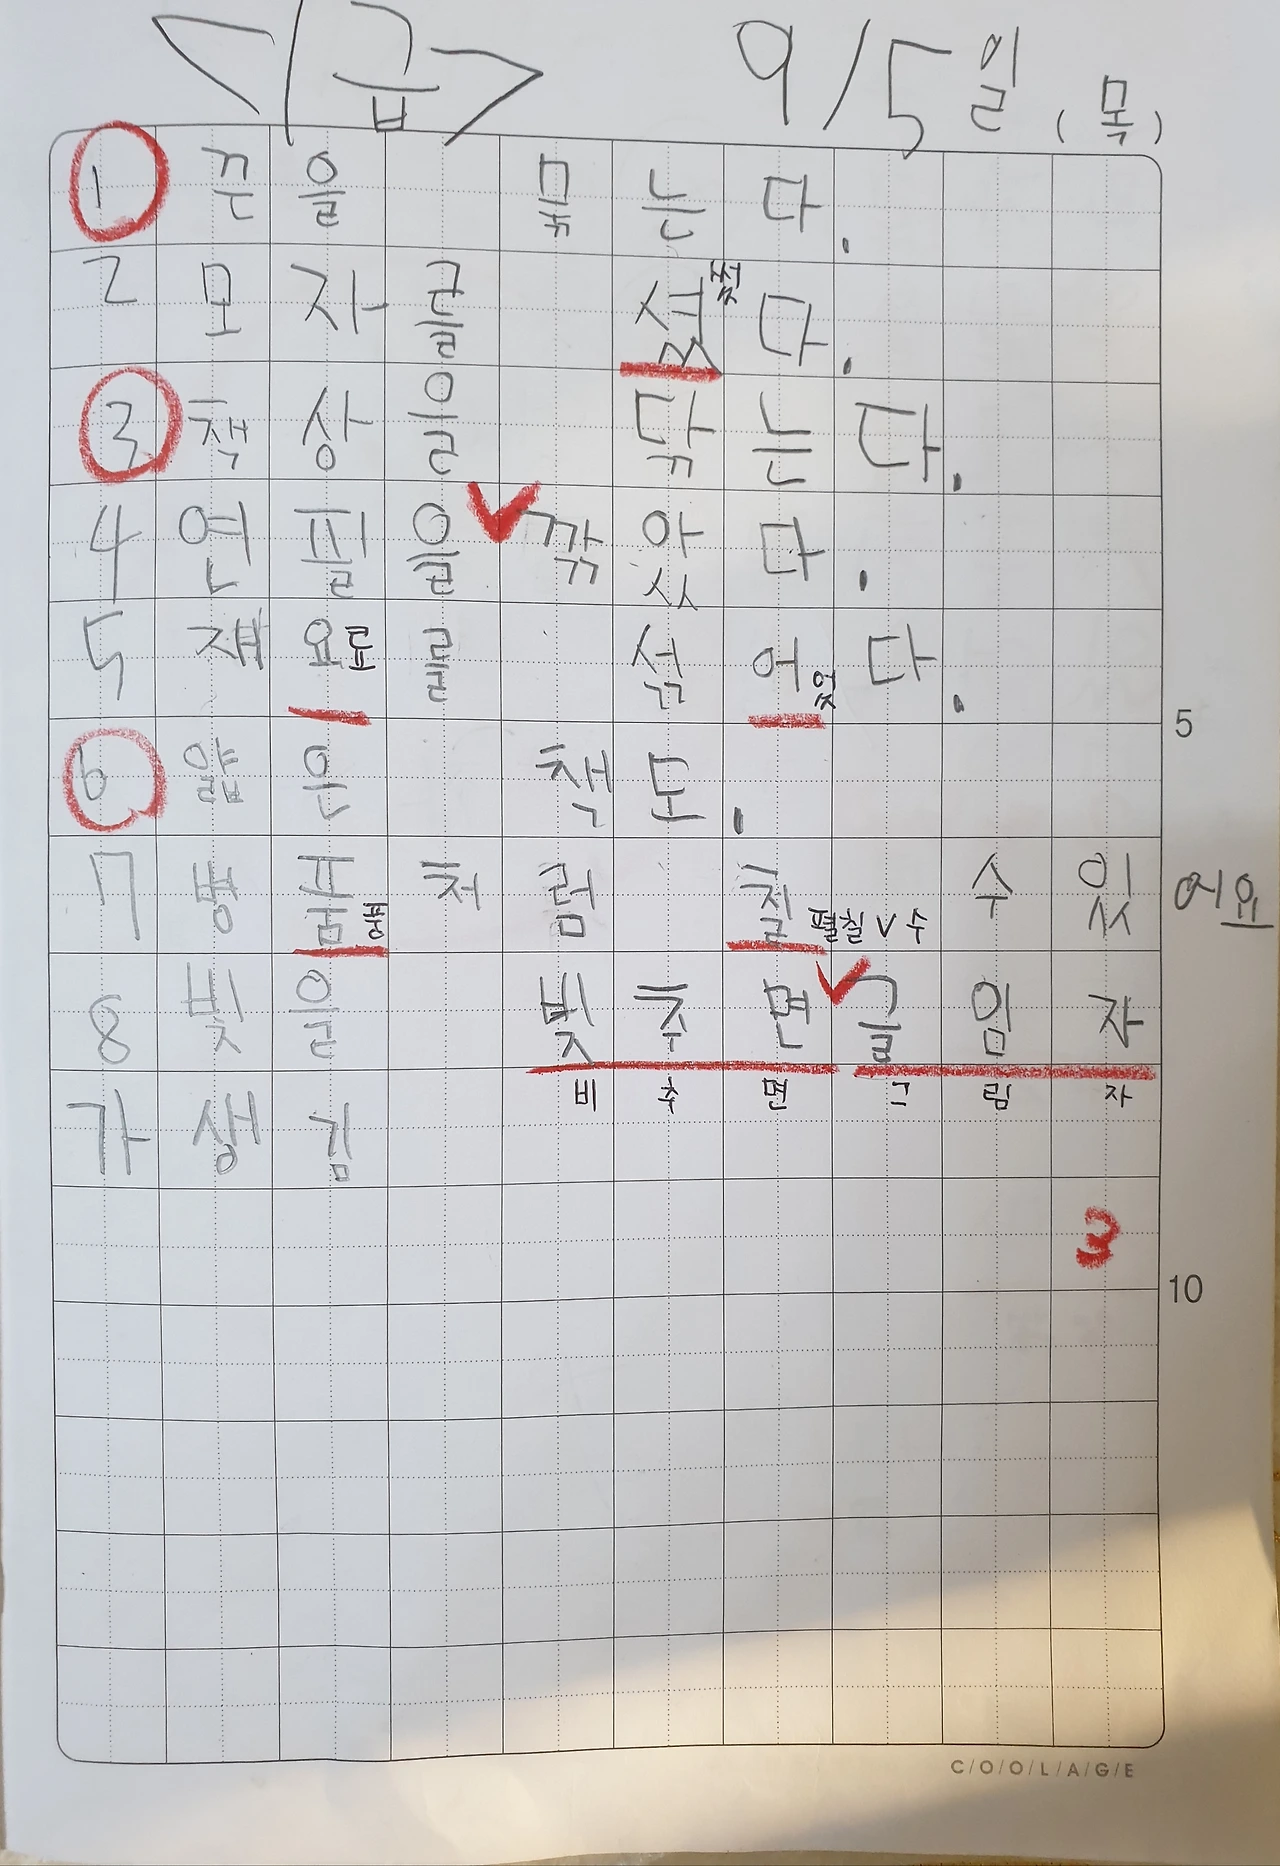 <1급> 9/5일 (목)
1 끈을 묶는다.
2 모자를 섰다. 썼
3 책상을 닦는다.
4 연필을 깎았다.
5 재요료를 섞어었다.
6 얇은 책도.
7 병품풍처럼 칠 수 있어요
펼칠 V 수
8 빛을 빛추면 글임자
비추면 그림자
가 생김
3
5
10
C/O/O/L/A/G/E